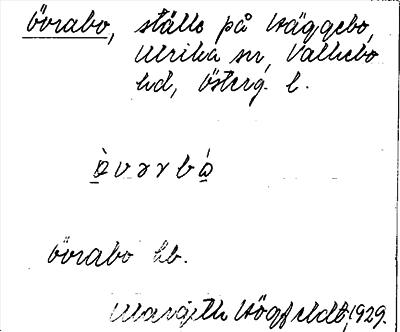 Övrabo, ställe på Häggebo,
Ulrika sn, Valkebo
hd, Österg. l.
ò̱vərbó̱
Övrabo hb.
Margith Högfeldt, 1929.